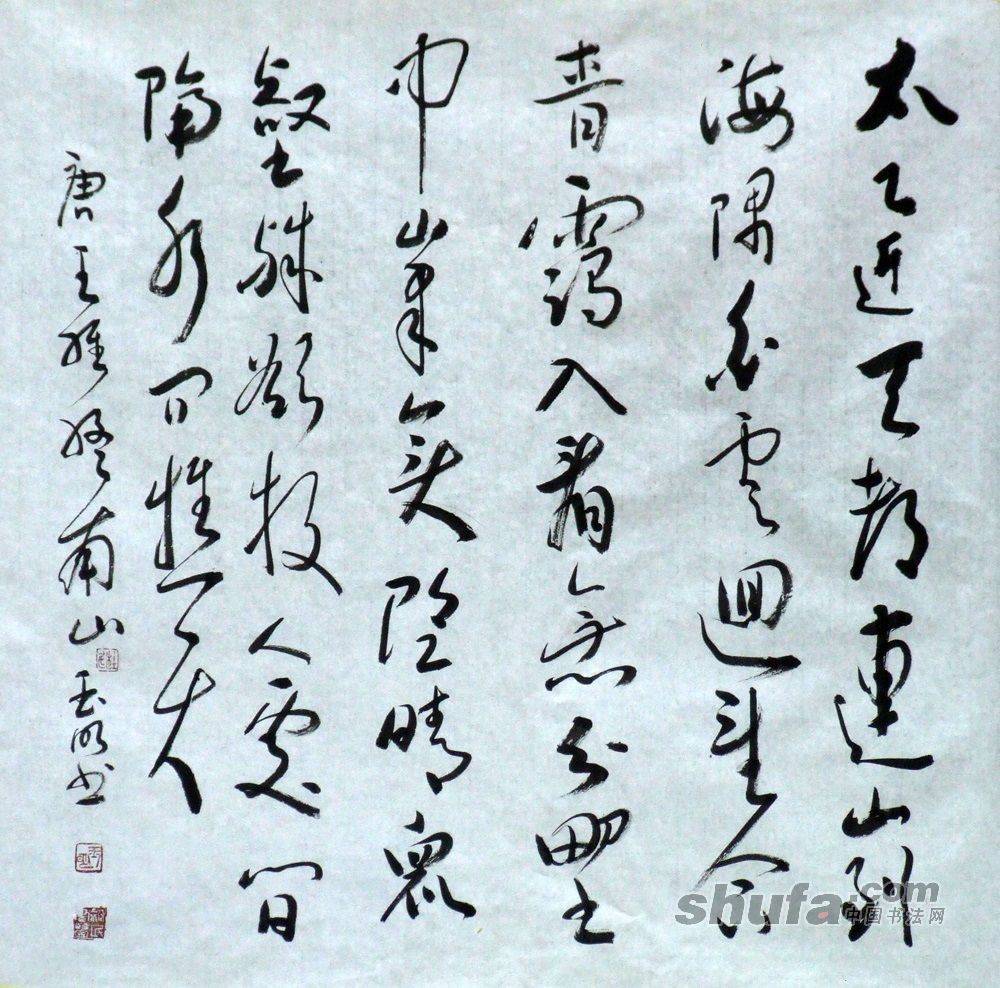 太乙近天都連山到
海隅白雲迴望合
青靄入看無分野
中峯變陰晴眾
壑殊欲投人處宿
隔水問樵夫
唐王維終南山 书
shufa.com
中国书法网